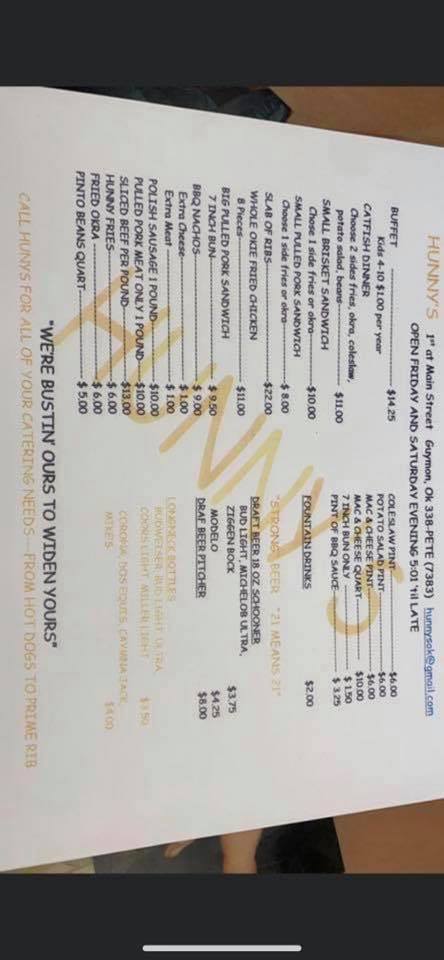 HUNNY'S 1st at Main Street Guymon, OK 338-PETE (7383) hunnysok@gmail.com
OPEN FRIDAY AND SATURDAY EVENING 5:01 'til LATE
BUFFET ---------- $14.25
Kids 4-10 $1.00 per year
CATFISH DINNER
Choose 2 sides fries, okra, coleslaw,
potato salad, beans---------- $11.00
SMALL BRISKET SANDWICH
Chose 1 side fries or okra---------- $10.00
SMALL PULLED PORK SANDWICH
Choose 1 side fries or okra---------- $ 8.00
SLAB OF RIBS---------- $22.00
WHOLE OKIE FRIED CHICKEN
8 Pieces---------- $11.00
BIG PULLED PORK SANDWICH
7 INCH BUN---------- $ 9.50
BBQ NACHOS---------- $ 9.00
Extra Cheese---------- $ 1.00
Extra Meat---------- $ 1.00
POLISH SAUSAGE 1 POUND---------- $10.00
PULLED PORK MEAT ONLY 1 POUND---------- $10.00
SLICED BEEF PER POUND---------- $13.00
HUNNY FRIES---------- $ 6.00
FRIED OKRA---------- $ 6.00
PINTO BEANS QUART---------- $ 5.00
COLESLAW PINT---------- $6.00
POTATO SALAD PINT---------- $6.00
MAC & CHEESE PINT---------- $6.00
MAC & CHEESE QUART---------- $10.00
7 INCH BUN ONLY---------- $ 1.50
PINT OF BBQ SAUCE---------- $ 3.25
FOUNTAIN DRINKS $2.00
"STRONG" BEER "21 MEANS 21"
DRAFT BEER 18 OZ SCHOONER
BUD LIGHT, MICHELOB ULTRA,
ZIGGEN BOCK $3.75
MODELO $4.25
DRAF BEER PITCHER $8.00
LONGNECK BOTTLES
BUDWEISER, BUD LIGHT, ULTRA
COORS LIGHT, MILLER LIGHT $3.50
CORONA, DOS EQUIS, CAYMNA JACK,
MIKE'S $4.00
HUNNY'S
"WE'RE BUSTIN' OURS TO WIDEN YOURS"
CALL HUNYS FOR ALL OF YOUR CATERING NEEDS – FROM HOT DOGS TO PRIME RIB